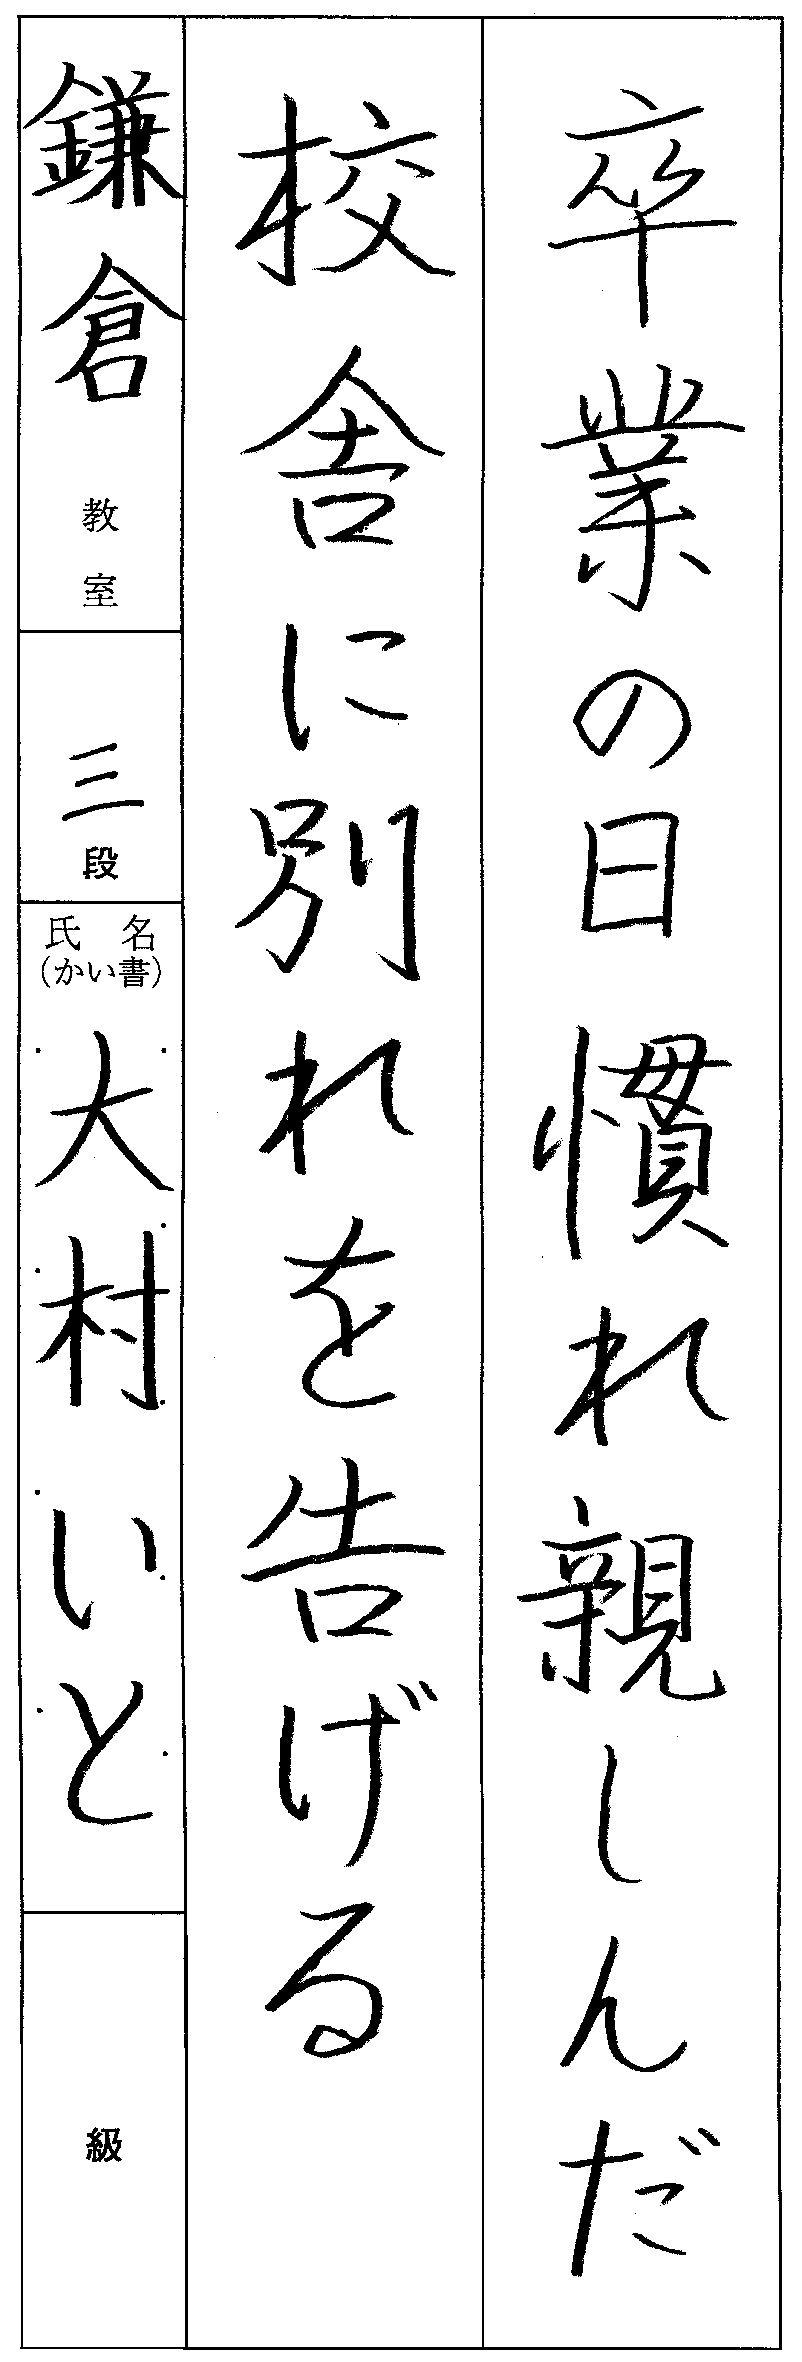 卒業の日慣れ親しんだ
校舎に別れを告げる
鎌倉教室
三段
氏名
(かい書)
大村いと
級